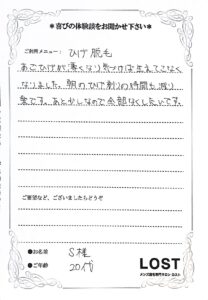 ＊喜びの体験談をお聞かせ下さい＊
ご利用メニュー： ひげ脱毛
あごひげが薄くなり気づけば生えてこなく
なりました。朝のひげ剃りの時間も減り
楽です。あと少しなので全部なくしたいです。
ご要望など、ございましたらどうぞ
●お名前 S様
●ご年齢 20代
LOST
メンズ脱毛専門サロン ロスト